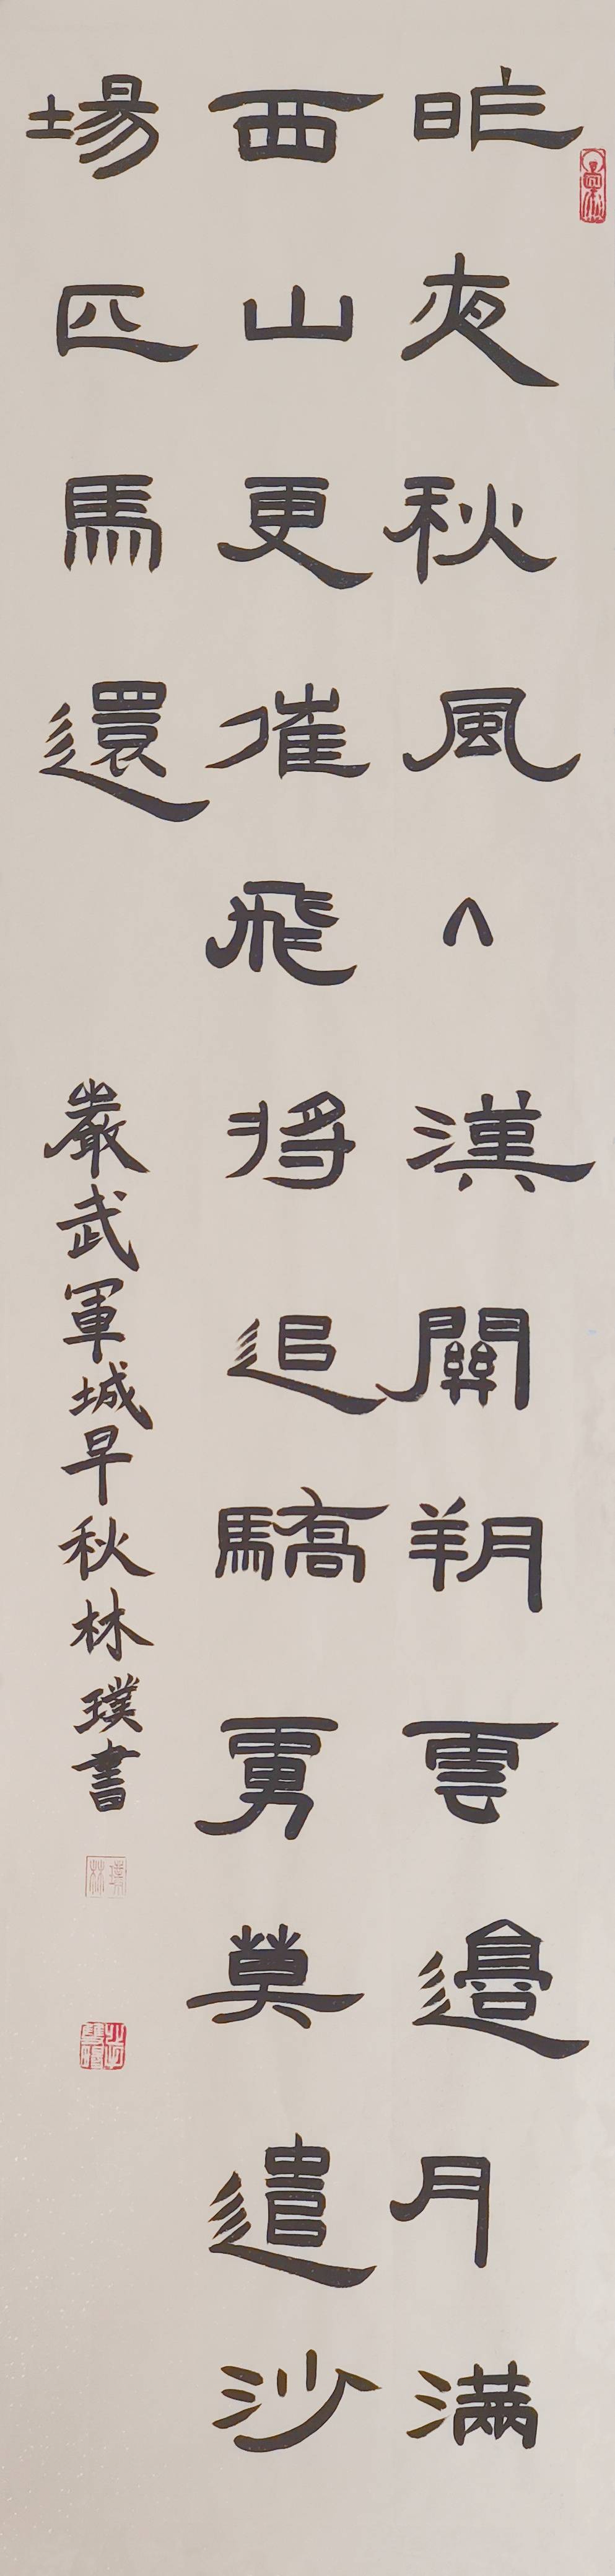 昨夜秋風入漢關朔雲邉月滿
西山更催飛將追驕虜莫遣沙
場匹馬還
嚴武軍城早秋林璞書
林璞